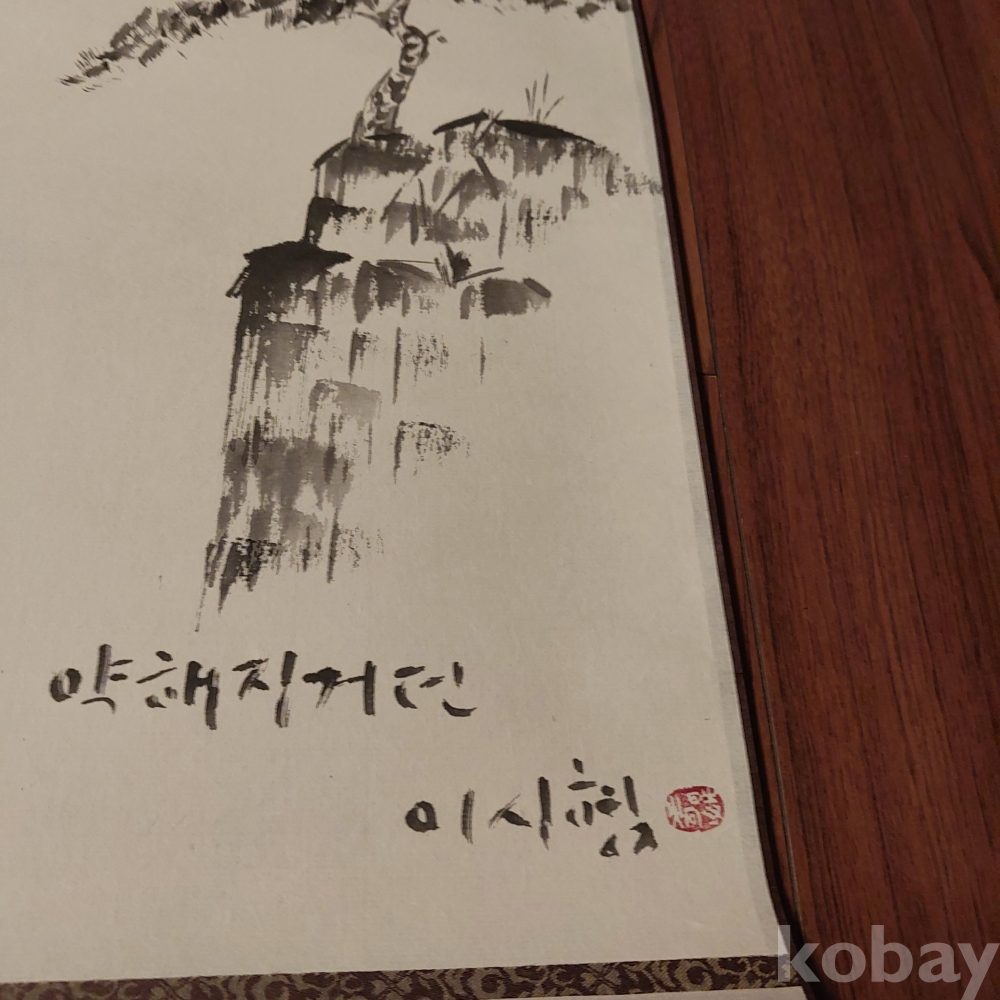 약해지거던
이시형
kobay